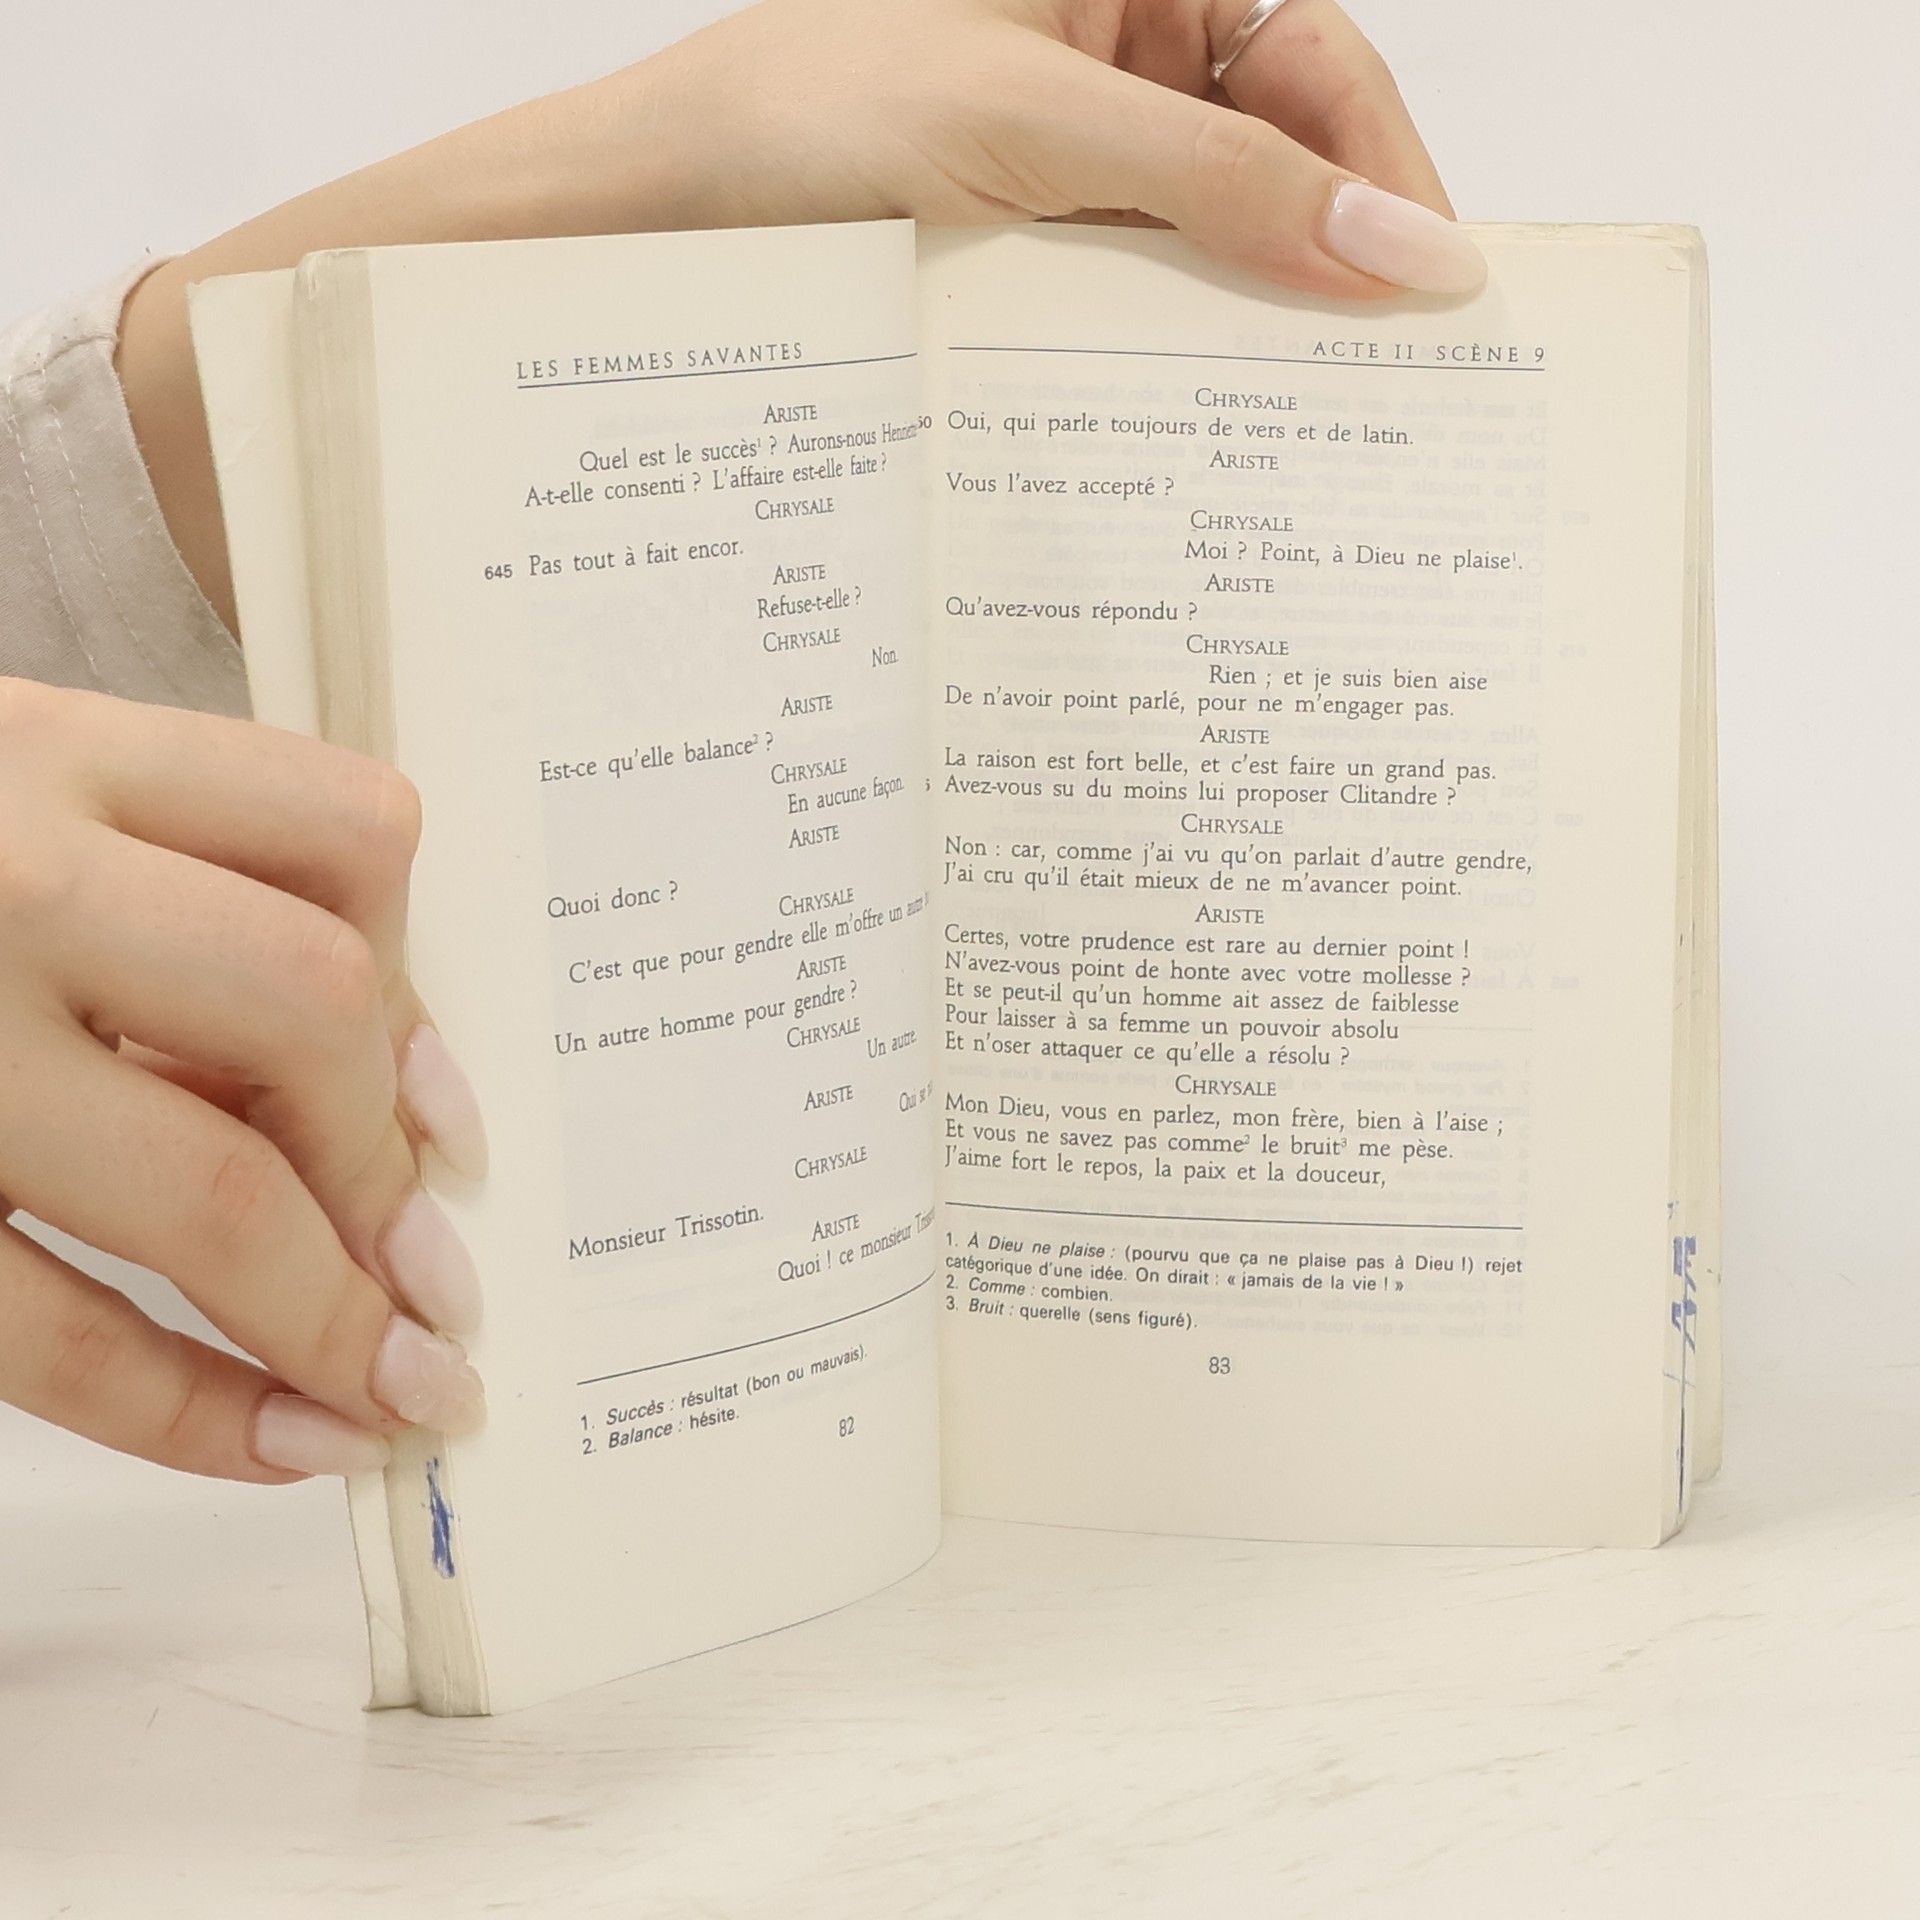 LES FEMMES SAVANTES
ARISTE
Quel est le succès¹ ? Aurons-nous
A-t-elle consenti ? L'affaire est-elle faite ?
CHRYSALE
645 Pas tout à fait encor.
ARISTE
Refuse-t-elle ?
CHRYSALE
Non.
ARISTE
Est-ce qu'elle balance² ?
CHRYSALE
En aucune façon.
ARISTE
Quoi donc ?
CHRYSALE
C'est que pour gendre elle m'offre un autre
ARISTE
Un autre homme pour gendre ?
CHRYSALE
Un autre.
ARISTE
Qui se
CHRYSALE
Monsieur Trissotin.
ARISTE
Quoi ! ce monsieur
1. Succès : résultat (bon ou mauvais).
2. Balance : hésite.
82
ACTE II SCÈNE 9
CHRYSALE
50 Oui, qui parle toujours de vers et de latin.
ARISTE
Vous l'avez accepté ?
CHRYSALE
Moi ? Point, à Dieu ne plaise¹.
ARISTE
Qu'avez-vous répondu ?
CHRYSALE
Rien ; et je suis bien aise
De n'avoir point parlé, pour ne m'engager pas.
ARISTE
La raison est fort belle, et c'est faire un grand pas.
Avez-vous su du moins lui proposer Clitandre ?
CHRYSALE
Non : car, comme j'ai vu qu'on parlait d'autre gendre,
J'ai cru qu'il était mieux de ne m'avancer point.
ARISTE
Certes, votre prudence est rare au dernier point !
N'avez-vous point de honte avec votre mollesse ?
Et se peut-il qu'un homme ait assez de faiblesse
Pour laisser à sa femme un pouvoir absolu
Et n'oser attaquer ce qu'elle a résolu ?
CHRYSALE
Mon Dieu, vous en parlez, mon frère, bien à l'aise ;
Et vous ne savez pas comme² le bruit³ me pèse.
J'aime fort le repos, la paix et la douceur,
1. À Dieu ne plaise : (pourvu que ça ne plaise pas à Dieu !) rejet
catégorique d'une idée. On dirait : « jamais de la vie ! »
2. Comme : combien.
3. Bruit : querelle (sens figuré).
83